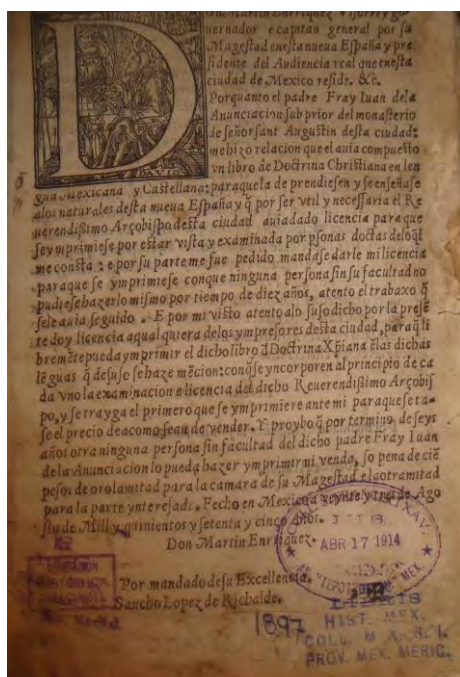 Don Martin Enrriquez Visorrey go
uernador e capitan general por su
Magestad enesta nueua España y pre
sidente del Audiencia real que enesta
ciudad de Mexico reside. &c.
Porquanto el padre Fray Iuan dela
Anunciacion sub prior del monasterio
de señor sant Augustin desta ciudad:
me hizo relacion que el auia compuesto
vn libro de Doctrina Christiana en len
gua Mexicana y Castellana: paraquela de prendiesen y se enseñase
alos naturales desta nueua España y q̄ por ser vtil y necessaria el Re
uerendißimo Arçobispo desta ciudad auia dado licencia para que
se ymprimiese por estar vista y examinada por p̄sonas doctas delo q̄l
me consta: e por su parte me fue pedido mandase darle mi licencia
para que se ymprimiese conque ninguna persona sin su facultad no
pudiese hazer lo mismo por tiempo de diez años, atento el trabaxo q̄
sele auia seguido. E por mi visto atento alo suso dicho por la presē
te doy licencia a qual quiera delos ympresores desta ciudad, para q̄ li
bremēte pueda ymprimir el dicho libro d̄ Doctrina Xp̄iana ēlas dichas
lēguas q̄ de suso se haze mēcion: conq̄ se yncorporen al principio de ca
da vno la examinacion e licencia del dicho Reuerendißimo Arçobis
po, y se trayga el primero que se ymprimiere ante mi para que se ta-
se el precio de acomo sean de vender. Y proybo q̄ por termino de seys
años otra ninguna persona sin facultad del dicho padre Fray Iuan
de la Anunciacion lo pueda hazer ymprimir ni venda, so pena de ciē
pesos de oro la mitad para la camara de su Magestad e la otra mitad
para la parte ynteresada. Fecho en Mexico a veynte y tres de Ago
sto de Mill y quinientos y setenta y cinco Años.
Don Martin Enrriquez.
Por mandado de su Excellencia.
Sancho Lopez de Richalde.
ABR 17 1914
1897
HIST. MEX.
PROV. MEX. MERID.